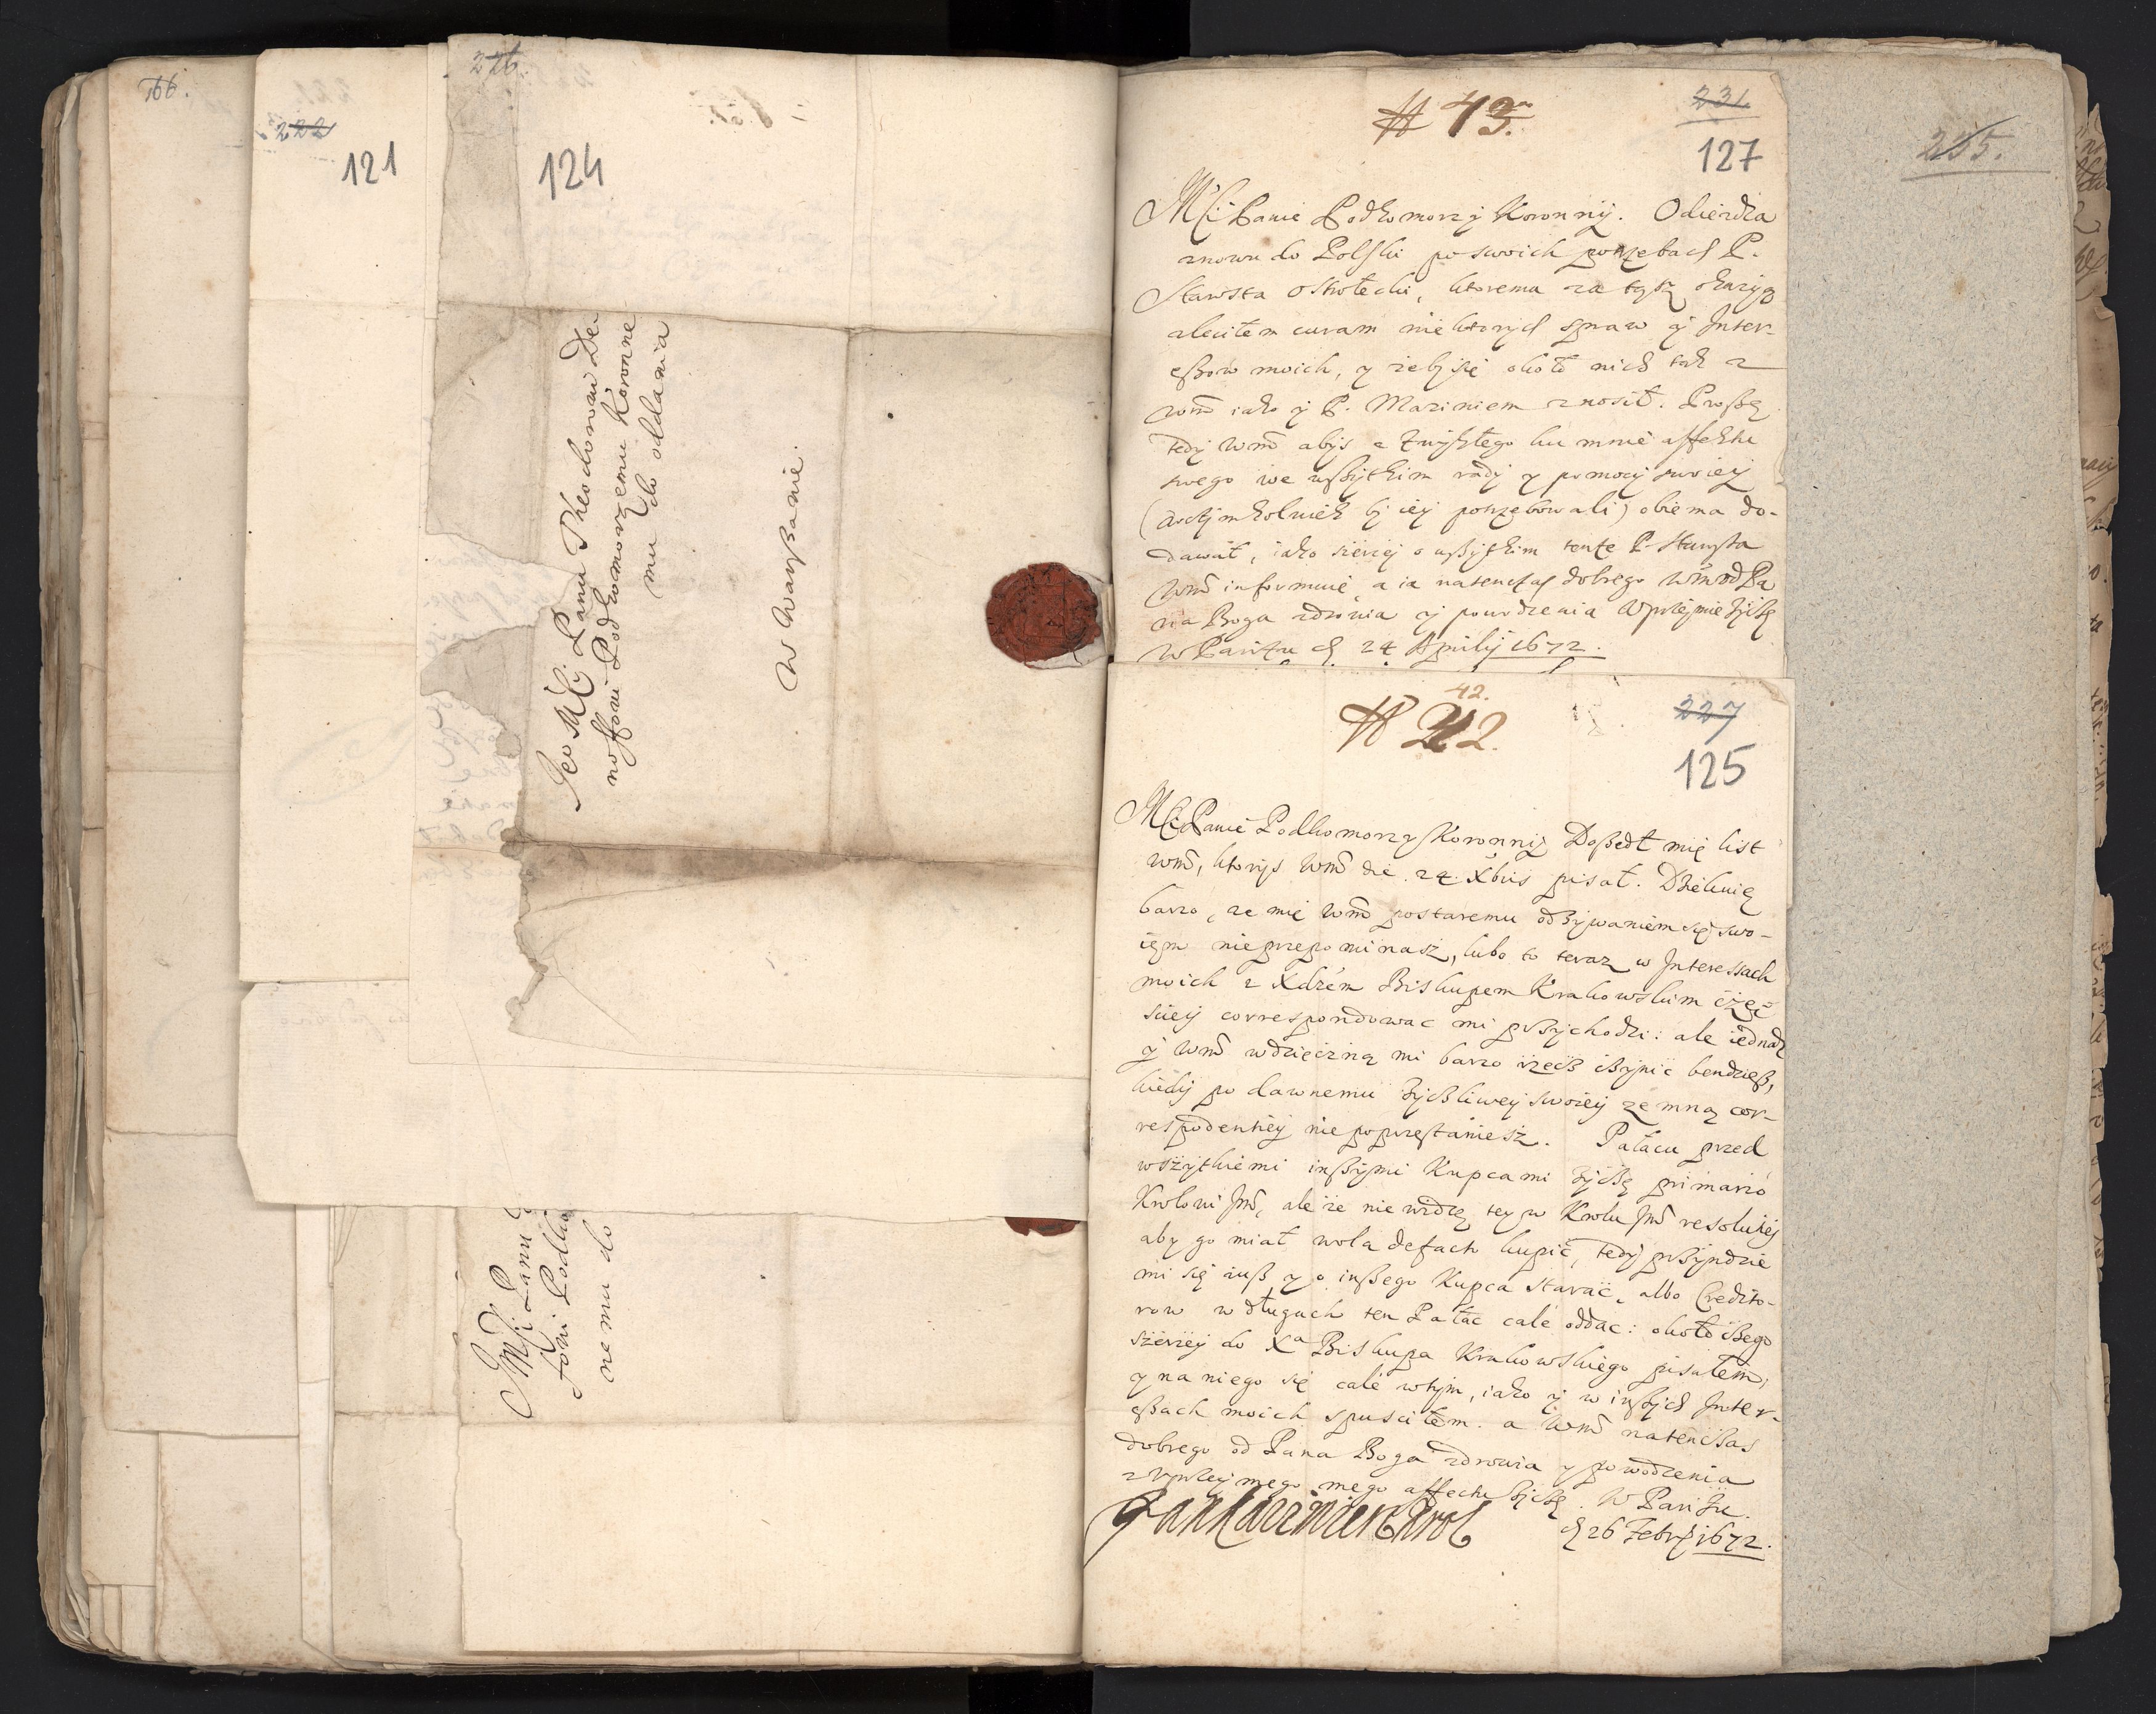 166.
222
121
226.
124
Jeo Mći Panu Theodorowi De-
noffowi Podkomorzemu Koronne
mu do oddania
W Warßawie.
JMści Panu
fowi Podko
nemu do
# 43.
231
127
235.
Mći Panie Podkomorzy Koronny. Odieżdza
znowu do Polski po swoich potrzebach P.
Starosta Ostrołecki, ktoremu za tąsz okazyą
zleciłem curam niektorych spraw y Inter-
eßow moich, y zeby się około nich tak z
wmć iako y P. Mariniem znosił. Proßę
tedy wmć abys z zwykłego ku mnie affektu
swego we wßytkim rady y pomocy swoiey
(w czymkolwiek by iey potrzebowali) obiema do-
dawał, iako szerzey o wßytkim tenże P. Starosta
wmć informuie, a ia natenczas dobrego wmć od Pa
na Boga zdrowia y powodzenia Uprzejmie życzę
w Pariżu d. 24 Aprilij 1672.
42.
# 42.
227
125
Mći Panie Podkomorzy Koronny Doßedł mię list
wmć, ktorys wmć die 24. Xbris pisał. Dziekuię
barzo, ze mię wmć postaremu odzywaniem się swo-
iem nieprzepominasz, lubo to teraz w Interessach
moich z Xdzem Biskupem Krakowskim częś-
ciey correspondowac mi przychodzi: ale iednak
y wmć wdzięczną mi barzo rzecz czynic bendzieß,
kiedy po dawnemu życzliwey swoiey ze mną cor-
respodentiey nie poprzestaniesz. Pałacu przed
wszytkiemi inßymi Kupcami życzę primario
Krolowi Jmć, ale ze nie widzę tey w Krolu Jmć resolutiey
aby go miał wola defacto kupić, tedy przyndzie
mi się iuß y o inßego Kupca starać, albo Credito-
row w długach ten Pałac cale oddac: około czego
szerzey do Xa Biskupa Krakowskiego pisałem,
y na niego się cale w tym, iako y w inßych Inter-
eßach moich spusciłem. a wmć natenczas
dobrego od Pana Boga zdrowia y powodzenia
z uprzeymego mego affectu życzę. W Pariżu.
d 26 Febr. 1672.
Jan Kazimierz Krol